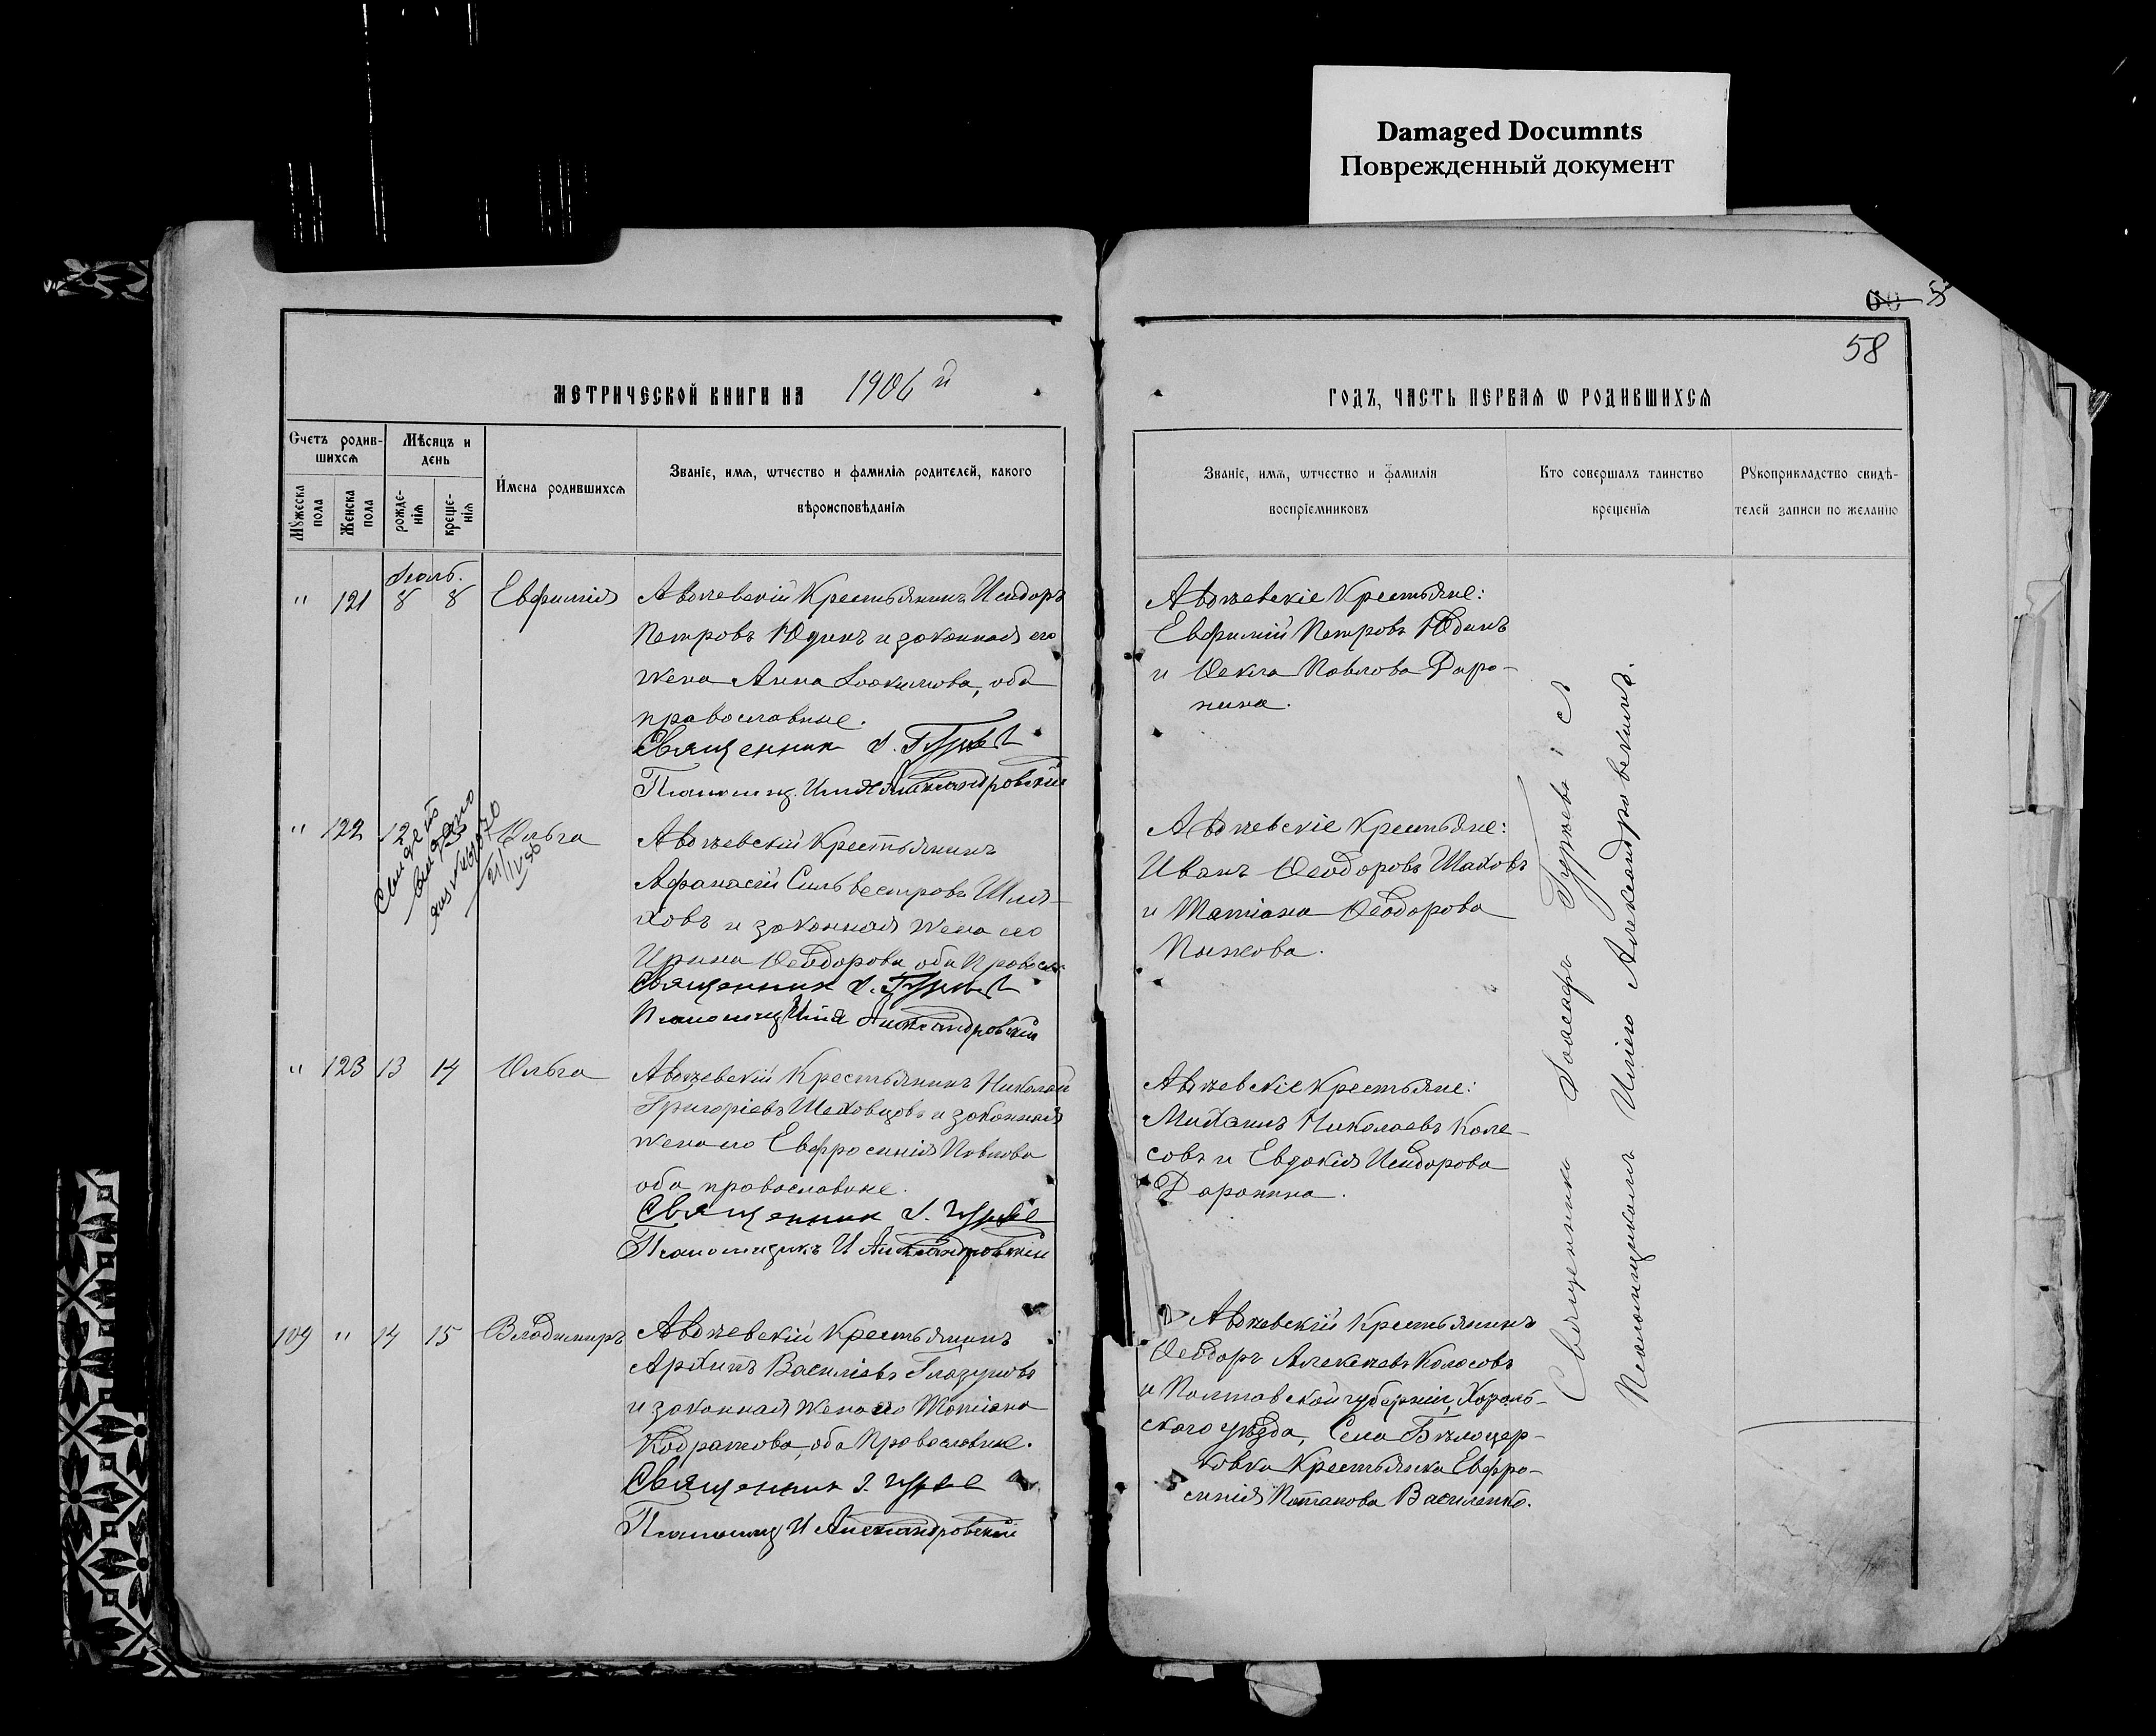 Damaged Documnts
Поврежденный документ
58
МЕТРИЧЕСКОЙ КНИГИ НА 1906 й
ГОДЪ, ЧАСТЬ ПЕРВАЯ Ѡ РОДИВШИХСЯ
Счетъ родив-
шихся
Мѣсяцъ и
день
Мужеска
пола
Женска
пола
рожде-
нія
креще-
нія
Имена родившихся
Званіе, имя, ѡтчество и фамилія родителей, какого
вѣроисповѣданія
Званіе, имя, ѡтчество и фамилія
воспріемниковъ
Кто совершалъ таинство
крещенія
Рꙋкоприкладство свидѣ-
телей записи по желанію
Іюль.
" 121 8 8 Евфимія
Авдѣевскій Крестьянинъ Исидоръ
Петровъ Юдинъ и законная его
жена Анна Іоакимова, оба
православные.
Священник І. Гуржев
Псаломщ. Илія Александровскій
Авдѣевскіе Крестьяне:
Евфимій Петровъ Юдинъ
и Ѳекла Павлова Даро-
нина.
" 122 12 Ольга
Авдѣевскій Крестьянинъ
Афанасій Сильвестровъ Шля-
ховъ и законная жена его
Ирина Ѳеодорова оба Правосл.
Священник І. Гуржев
Псаломщ Илія Александровскій
Авдѣевскіе Крестьяне:
Иванъ Ѳеодоровъ Шаховъ
и Татіана Ѳеодорова
" 123 13 14 Ольга
Авдѣевскій Крестьянинъ Николай
Григоріевъ Шаховцовъ и законная
жена его Евфросинія Павлова
оба православные.
Священник І.
Псаломщикъ И Александровскій
Авдѣевскіе Крестьяне:
Михаилъ Николаевъ Коле-
совъ и Евдокія Исидорова
Даронина.
109 " 14 15 Владимиръ
Авдѣевскій Крестьянинъ
Архипъ Василіевъ Глазуновъ
и законная жена его Татіана
Кодратова, оба Православные.
Священник І.
Псаломщ И Александровскій
Авдѣевскій Крестьянинъ
Ѳеодоръ Алексѣевъ Колосовъ
и Полтавской губерніи, Хороль-
скаго уѣзда, Села Бѣлоцер-
ковка Крестьянка Евфро-
синія Потапова Василенко.
Священникъ Іоасафъ Гуржевъ съ
Псаломщикомъ Иліею Александровскимъ.